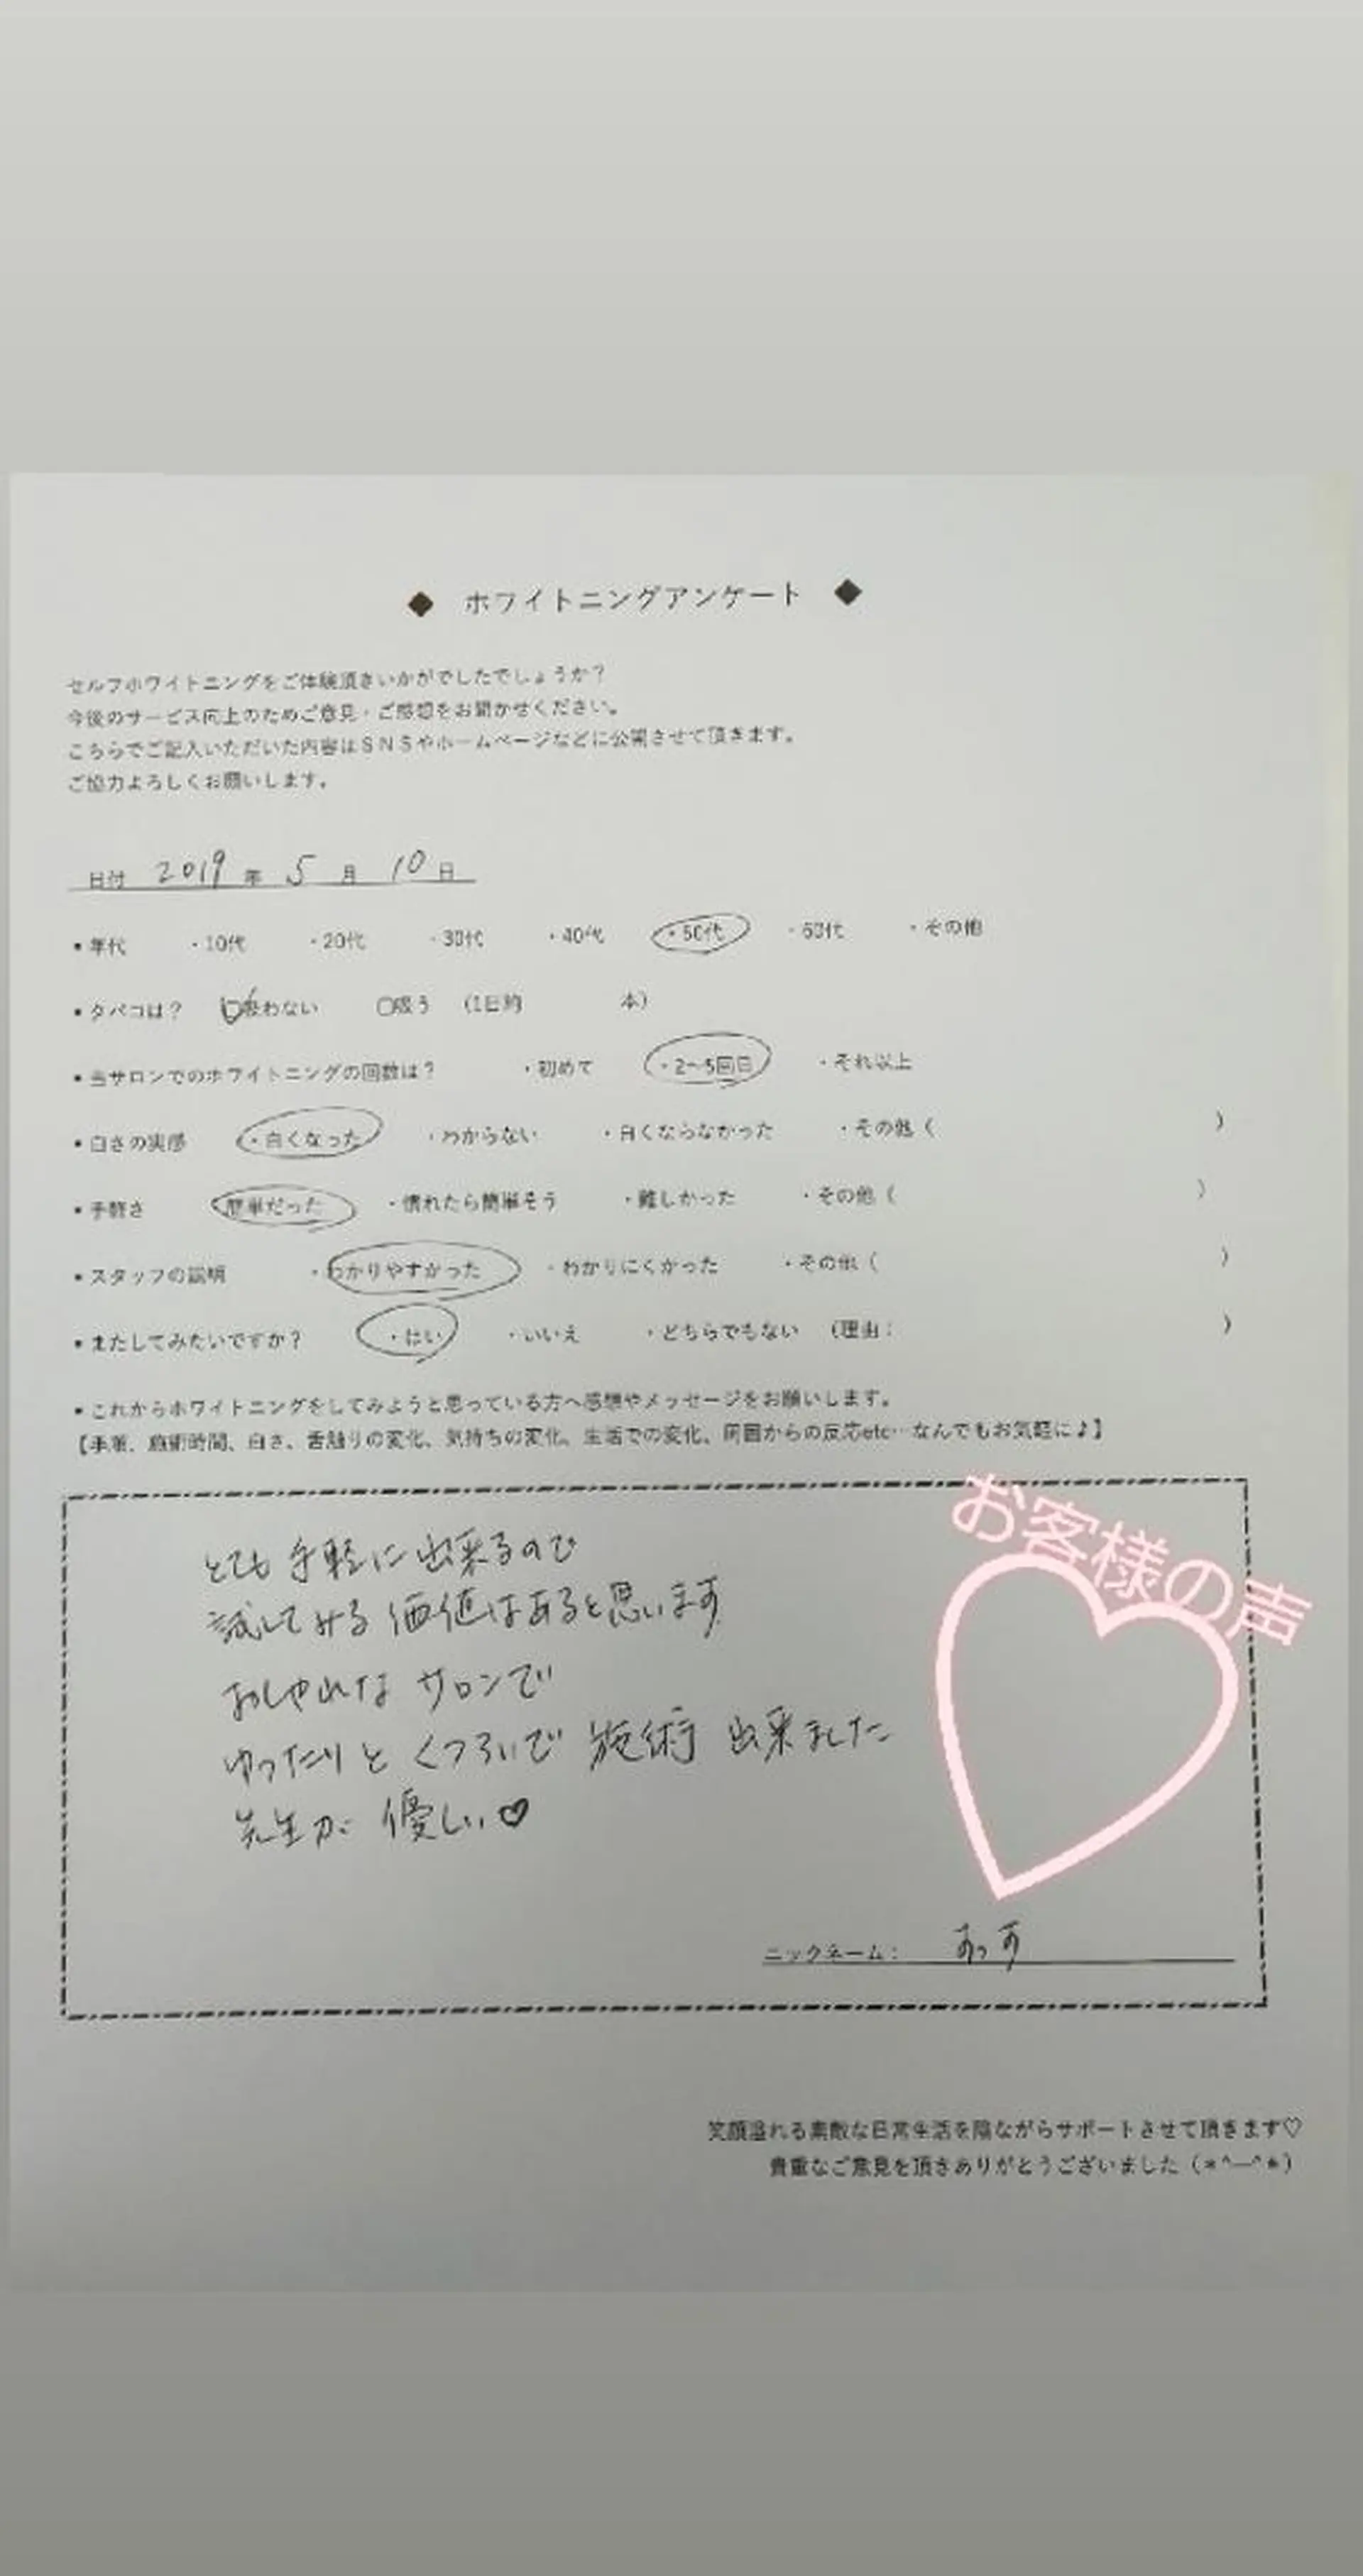 ◆ ホワイトニングアンケート ◆
セルフホワイトニングをご体験頂きいかがでしたでしょうか?
今後のサービス向上のためご意見・ご感想をお聞かせください。
こちらでご記入いただいた内容はSNSやホームページなどに公開させて頂きます。
ご協力よろしくお願いします。
日付 2019 年 5 月 10 日
▪年代 ・10代 ・20代 ・30代 ・40代 ・50代 ・60代 ・その他
▪タバコは? □吸わない □吸う (1日約 本)
▪当サロンでのホワイトニングの回数は? ・初めて ・2〜5回目 ・それ以上
▪白さの実感 ・白くなった ・わからない ・白くならなかった ・その他( )
▪手軽さ ・簡単だった ・慣れたら簡単そう ・難しかった ・その他( )
▪スタッフの説明 ・わかりやすかった ・わかりにくかった ・その他( )
▪またしてみたいですか? ・はい ・いいえ ・どちらでもない (理由: )
▪これからホワイトニングをしてみようと思っている方へ感想やメッセージをお願いします。
【手軽、施術時間、白さ、舌触りの変化、気持ちの変化、生活での変化、周囲からの反応etc…なんでもお気軽に♪】
お客様の声
とても手軽に出来るので
試してみる価値はあると思います
おしゃれな サロンで
ゆったりと くつろいで 施術 出来ました
先生が 優しい♡
ニックネーム: すっす
笑顔溢れる素敵な日常生活を陰ながらサポートさせて頂きます♡
貴重なご意見を頂きありがとうございました(*^—^*)